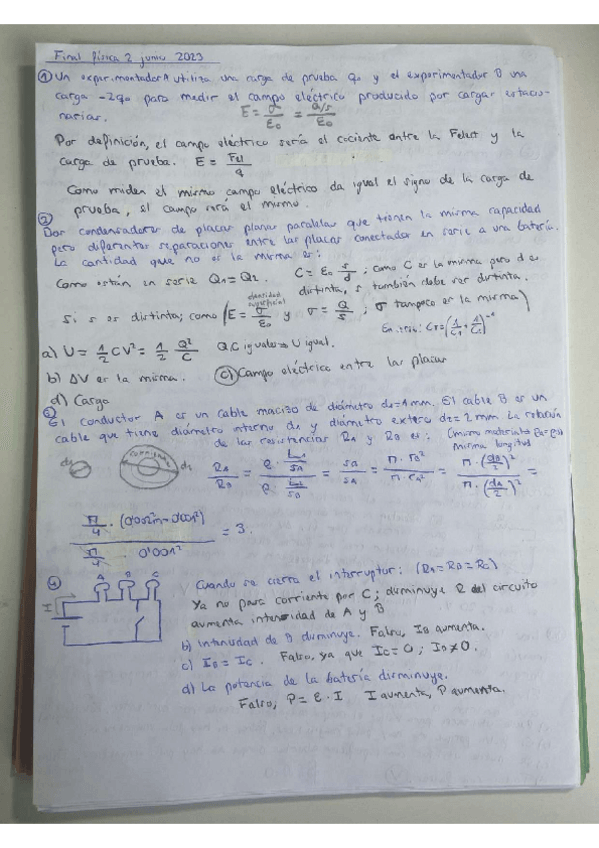 Final física 2 junio 2023
① Un experimentador A utiliza una carga de prueba q0 y el experimentador B una
carga -2q0 para medir el campo eléctrico producido por cargas estacio-
narias.
E = σ/ε0 = Q/s/ε0
Por definición, el campo eléctrico sería el cociente entre la Felect y la
carga de prueba. E = Fel/q
Como miden el mismo campo eléctrico da igual el signo de la carga de
prueba, el campo será el mismo.
②
Dos condensadores de placas planas paralelas que tienen la misma capacidad
pero diferentes separaciones entre las placas conectados en serie a una batería.
La cantidad que no es la misma es:
Como están en serie Q1=Q2. C = ε0 s/d ; como C es la misma pero d es
distinta, s también debe ser distinta.
densidad superficial
Si s es distinta; como (E = σ/ε0 y σ = Q/s ; σ tampoco es la misma)
En serie: CT = (1/C1 + 1/C2)^-1
a) U = 1/2 CV² = 1/2 Q²/C Q,C iguales → U igual.
b) ΔV es la misma. c) Campo eléctrico entre las placas
d) Carga
③
El conductor A es un cable macizo de diámetro d1=1mm. El cable B es un
cable que tiene diámetro interno d1 y diámetro externo d2=2mm La relación
de las resistencias RA y RB es: (mismo material
misma longitud
d1 corriente d2
RA/RB = ρ · L/SA / ρ · L/SB = SB/SA = π · rB²/π · rA² = π · (dB/2)²/π · (dA/2)² =
π/4 · (0'002² - 0'001²) / π/4 · 0'001² = 3.
④
A B C
I
Cuando se cierra el interruptor: (RA=RB=RC)
Ya no pasa corriente por C; disminuye R del circuito
aumenta intensidad de A y B
b) Intensidad de B disminuye. Falso, IB aumenta.
c) IB = IC. Falso, ya que IC=0; IB≠0.
d) La potencia de la batería disminuye.
Falso, P = ε · I I aumenta, P aumenta.